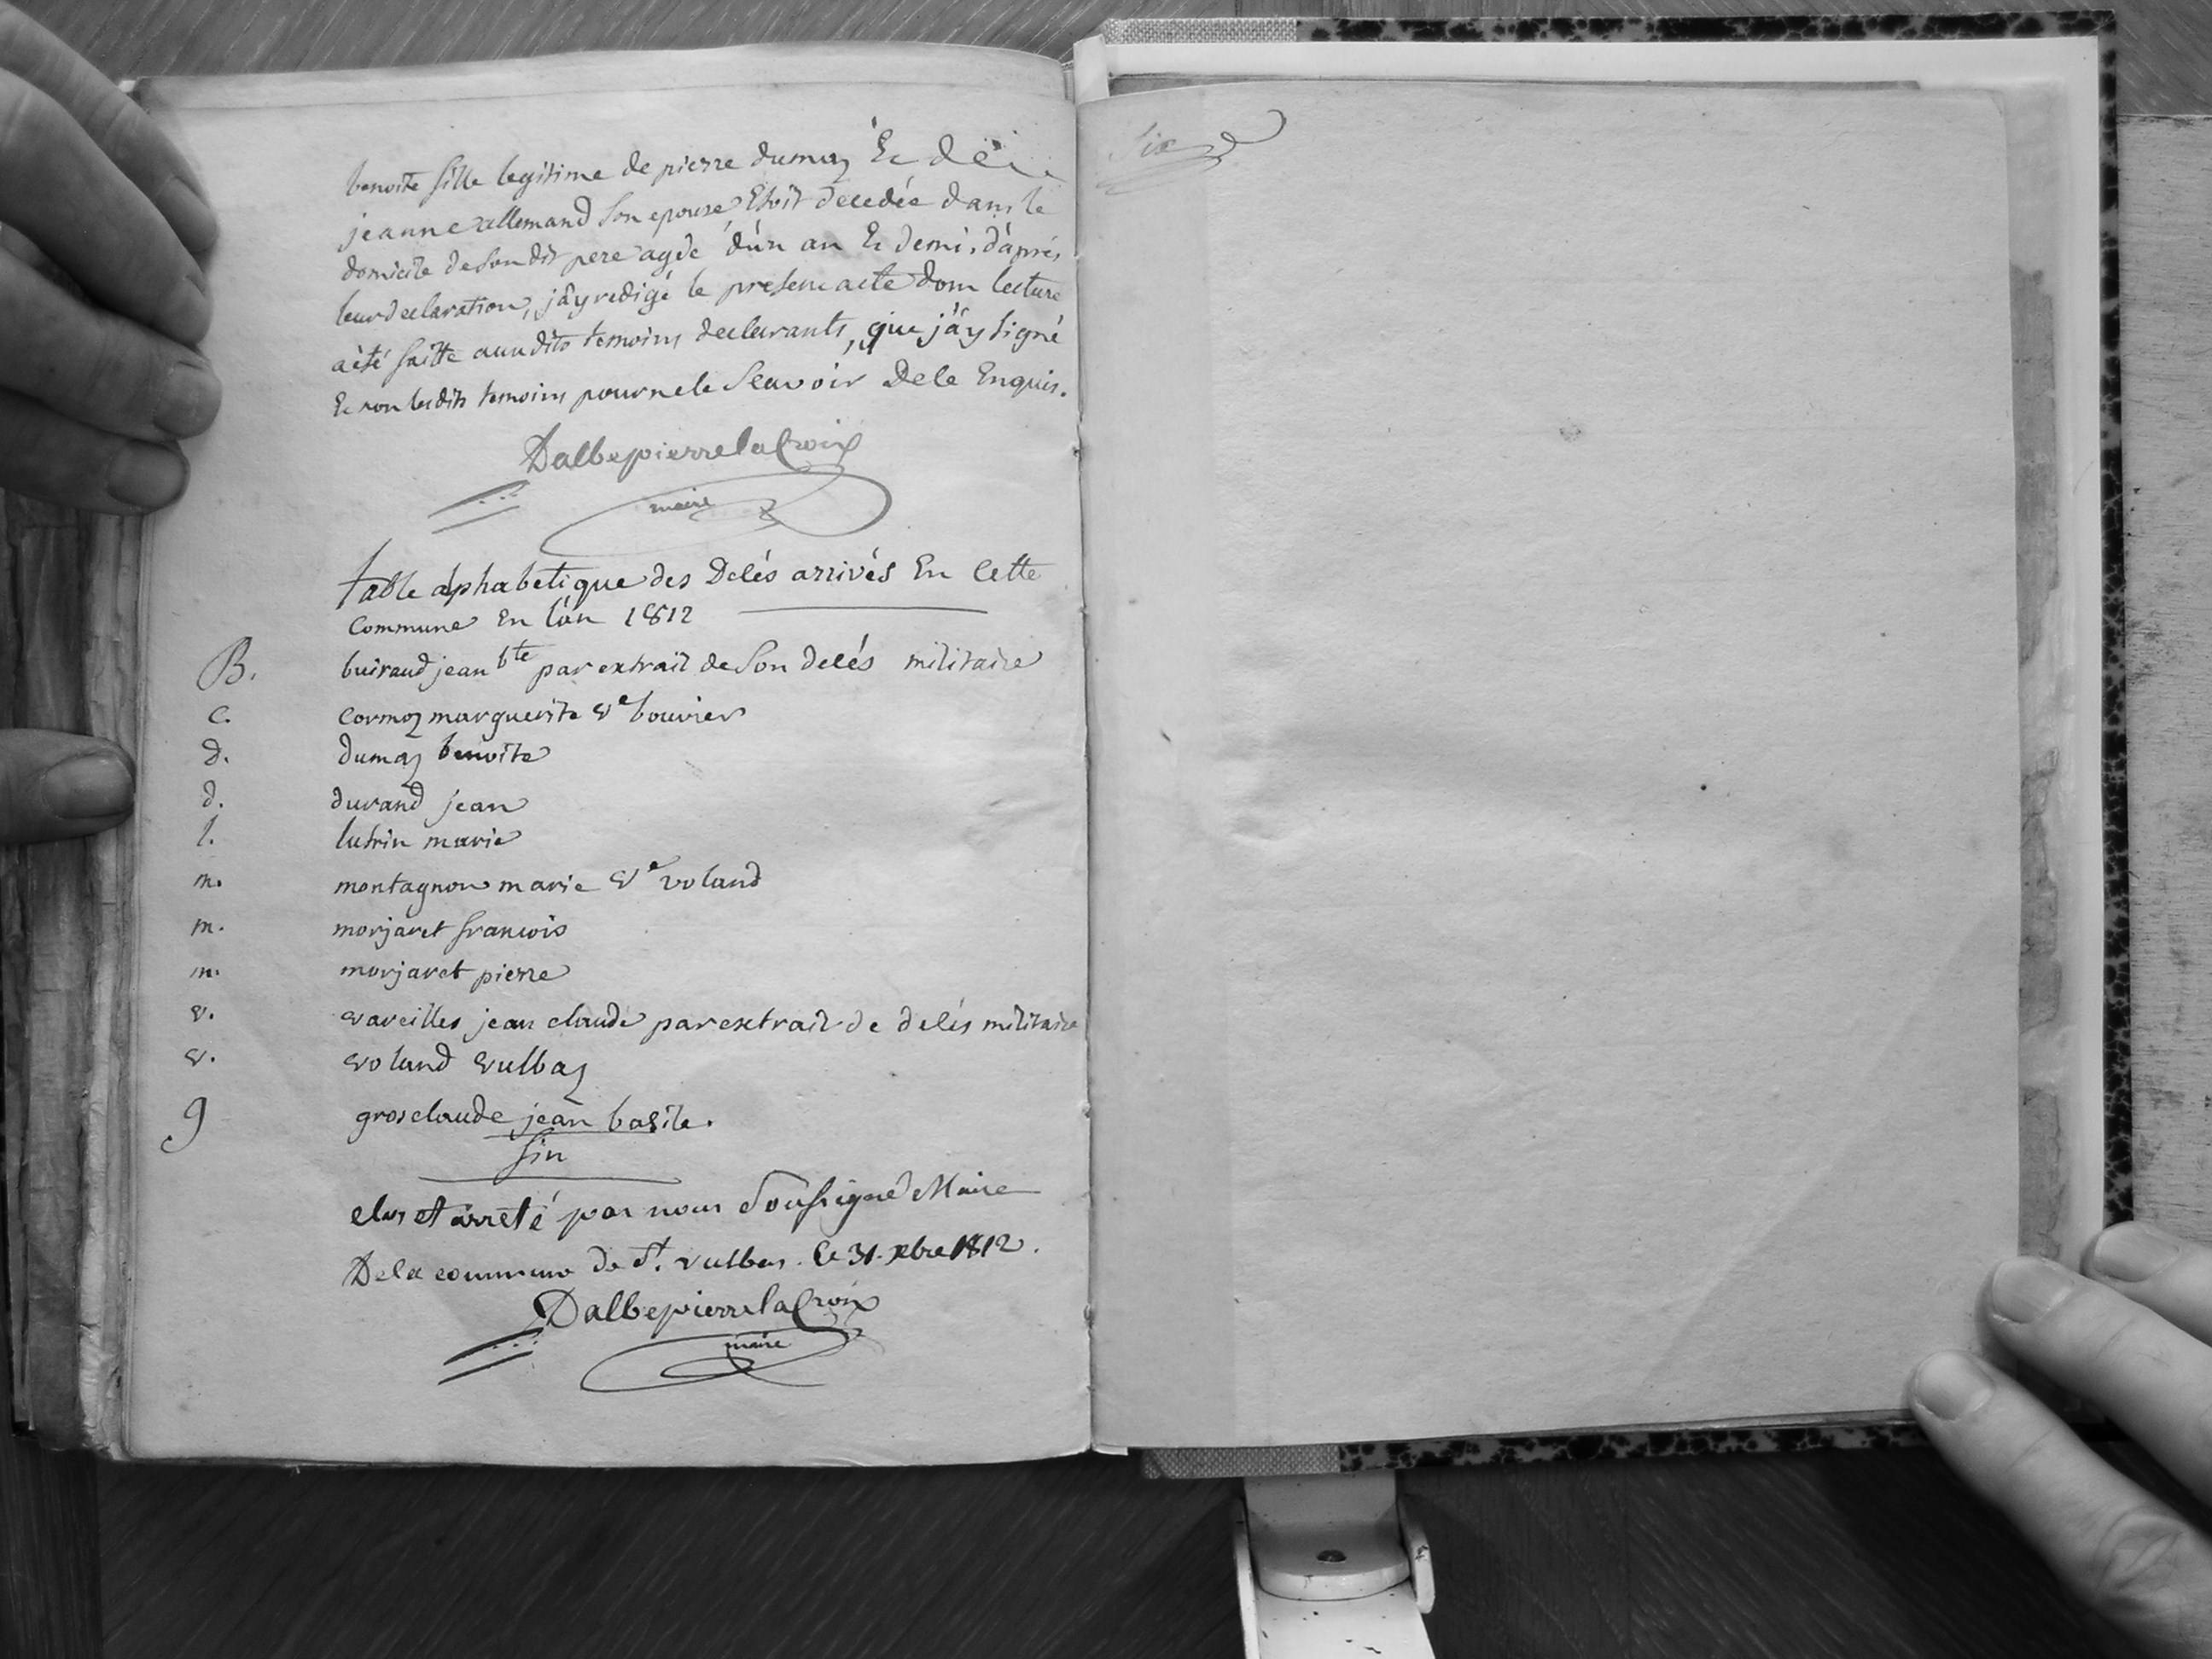 benoite fille legitime de pierre dumaz Et de
jeanne allemand son epouse Etoit decedée dans le
domicile de son dit pere agée d'ún an Et demi, d'áprés
leur declaration, j'áy redigé le present acte dont lecture
a été faitte auxdits temoins declarants, que j'áy signé
Et non lesdits temoins pour ne le Scavoir De le Enquis.
DalbepierrelaCroix
maire
table alphabetique des Delés arrivés En Cette
Commune En l'án 1812
B. buiraud jean bte par extrait de son delés militaire
C. Cormoz marguerite ve bouvier
d. dumaz benoite
d. durand jean
l. lutrin marie
m. montagnon marie ve voland
m. morjaret francois
m. morjaret pierre
v. vareilles jean claude par extrait de delés militaire
v. voland vulbaz
g grosclaude jean basile.
fin
clos et arreté par nous Soussigné Maire
De la commune de St. vulbas. le 31. xbre 1812.
DalbepierrelaCroix
maire